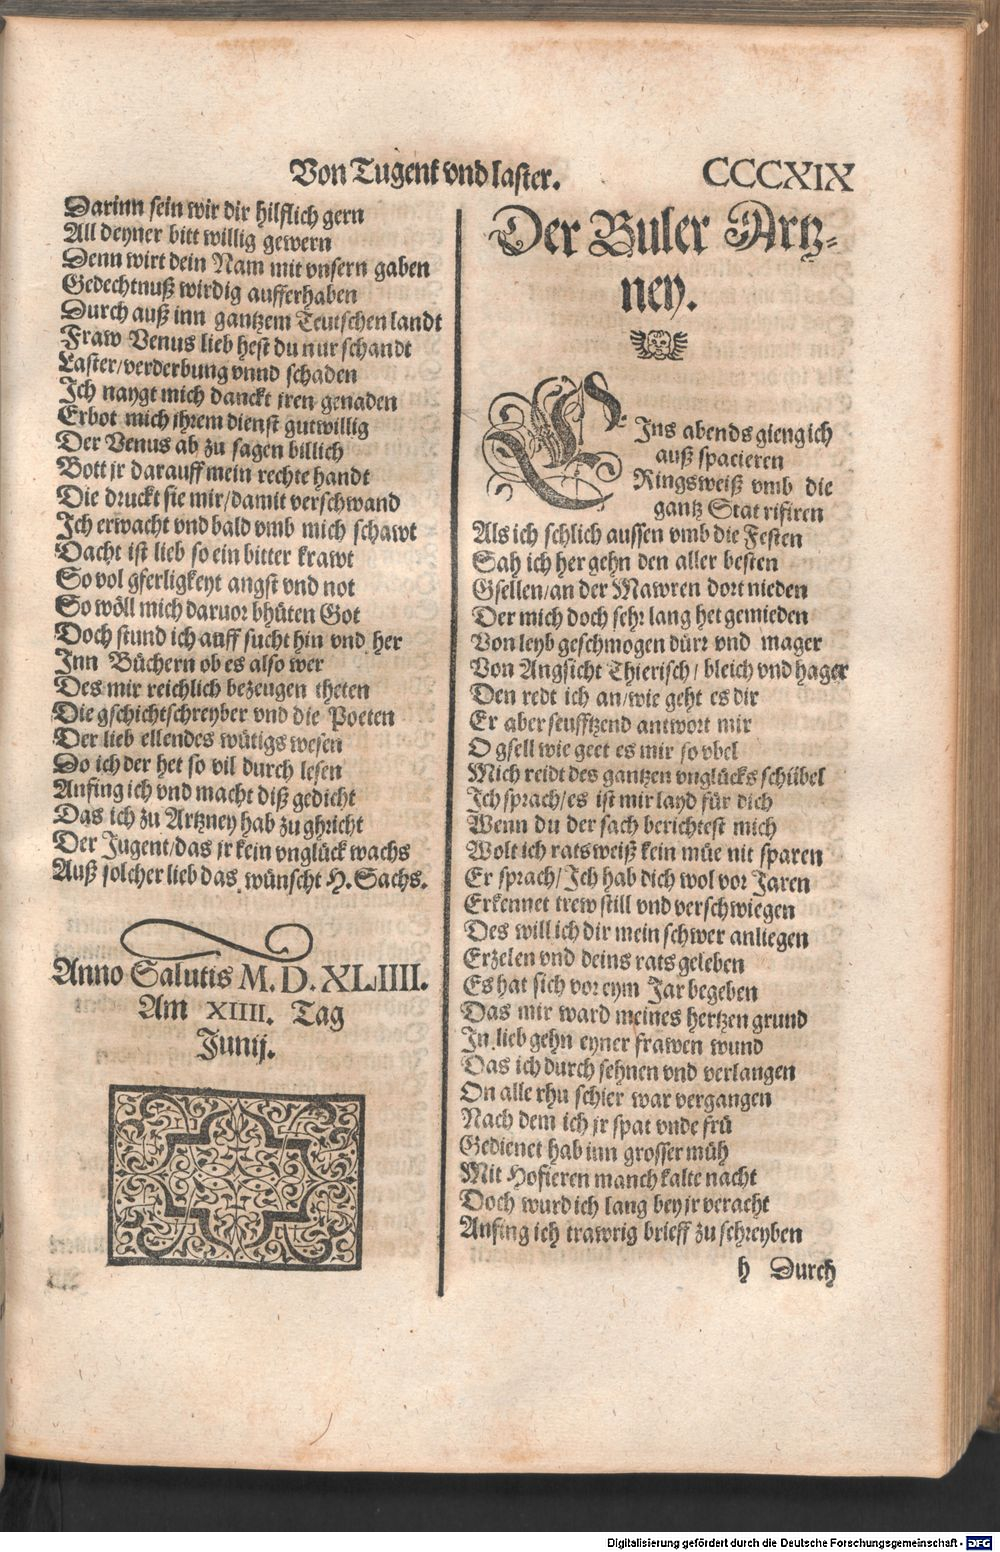 Von Tugent vnd laster. CCCXIX
Darinn sein wir dir hilflich gern
All deyner bitt willig gewern
Denn wirt dein Nam mit vnsern gaben
Gedechtnuß wirdig aufferhaben
Durch auß inn gantzem Teutschen landt
Fraw Venus lieb hest du nur schandt
Laster/verderbung vnnd schaden
Ich naygt mich danckt jren genaden
Erbot mich jhrem dienst gutwillig
Der Venus ab zu sagen billich
Bott jr darauff mein rechte handt
Die druckt sie mir/damit verschwand
Ich erwacht vnd bald vmb mich schawt
Dacht ist lieb so ein bitter krawt
So vol gferligkeyt angst vnd not
So wöll mich daruor bhüten Got
Doch stund ich auff sucht hin vnd her
Inn Büchern ob es also wer
Des mir reichlich bezeugen theten
Die gschichtschreyber vnd die Poeten
Der lieb ellendes wütigs wesen
Do ich der het so vil durch lesen
Anfing ich vnd macht diß gedicht
Das ich zu Artzney hab zu ghricht
Der Jugent/das jr kein vnglück wachs
Auß solcher lieb das wünscht H. Sachs.
Anno Salutis M. D. XLIIII.
Am XIIII. Tag
Junij.
Der Buler Artz-
ney.
EIns abends gieng ich
auß spacieren
Ringsweiß vmb die
gantz Stat rifiren
Als ich schlich aussen vmb die Festen
Sah ich her gehn den aller besten
Gsellen/an der Mawren dort nieden
Der mich doch sehr lang het gemieden
Von leyb geschmogen dürr vnd mager
Von Angsicht Thierisch/bleich vnd hager
Den redt ich an/wie geht es dir
Er aber seufftzend antwort mir
O gsell wie geet es mir so vbel
Mich reidt des gantzen vnglücks schübel
Ich sprach/es ist mir layd für dich
Wenn du der sach berichtest mich
Wolt ich ratsweiß kein müe nit sparen
Er sprach/Ich hab dich wol vor Jaren
Erkennet trew still vnd verschwiegen
Des will ich dir mein schwer anliegen
Erzelen vnd deins rats geleben
Es hat sich vor eym Jar begeben
Das mir ward meines hertzen grund
In lieb gehn eyner frawen wund
Das ich durch sehnen vnd verlangen
On alle rhu schier war vergangen
Nach dem ich jr spat vnde frü
Gedienet hab inn grosser müh
Mit Hofieren manch kalte nacht
Doch wurd ich lang bey jr veracht
Anfing ich trawrig brieff zu schreyben
h Durch
Digitalisierung gefördert durch die Deutsche Forschungsgemeinschaft - DFG